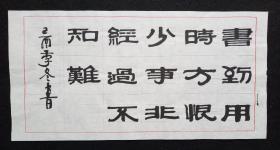 書到用
時方恨
少事非
經過不
知難
季冬